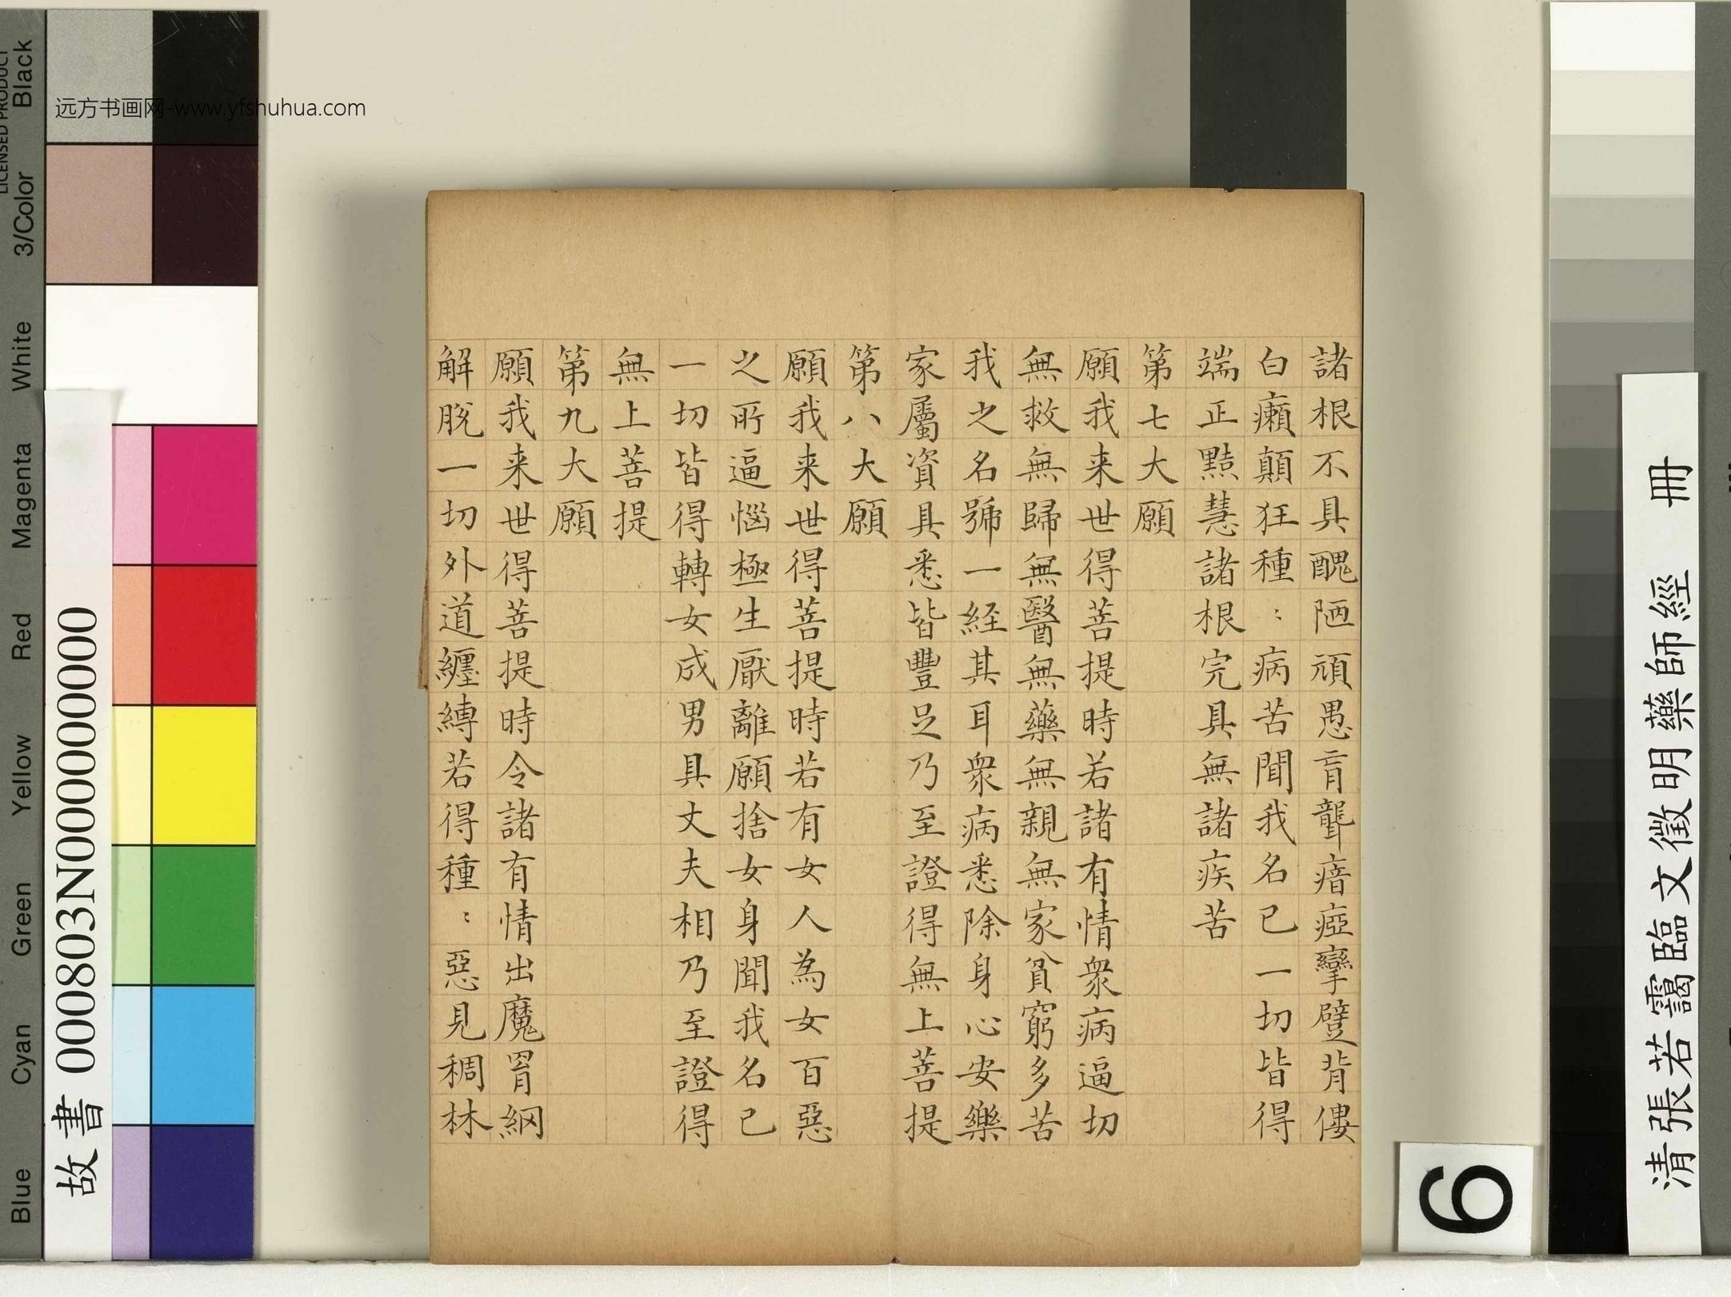 諸根不具醜陋頑愚盲聾瘖瘂攣躄背僂
白癩顛狂種：病苦聞我名已一切皆得
端正黠慧諸根完具無諸疾苦
第七大願
願我来世得菩提時若諸有情衆病逼切
無救無歸無醫無藥無親無家貧窮多苦
我之名號一経其耳衆病悉除身心安樂
家屬資具悉皆豐足乃至證得無上菩提
第八大願
願我来世得菩提時若有女人為女百惡
之所逼惱極生厭離願捨女身聞我名已
一切皆得轉女成男具丈夫相乃至證得
無上菩提
第九大願
願我来世得菩提時令諸有情出魔罥網
解脫一切外道纏縛若得種：惡見稠林
清張若靄臨文徵明藥師經 冊
6
故書 000803N000000000
远方书画网-www.yfshuhua.com
LICENSED PRODUCT
Black
3/Color
White
Magenta
Red
Yellow
Green
Cyan
Blue